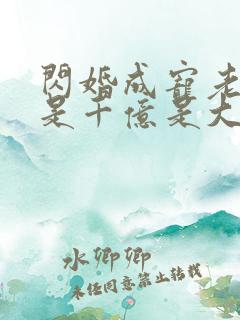 閃婚成寵老
是千億是大
水卿卿
未任同意禁止轉載